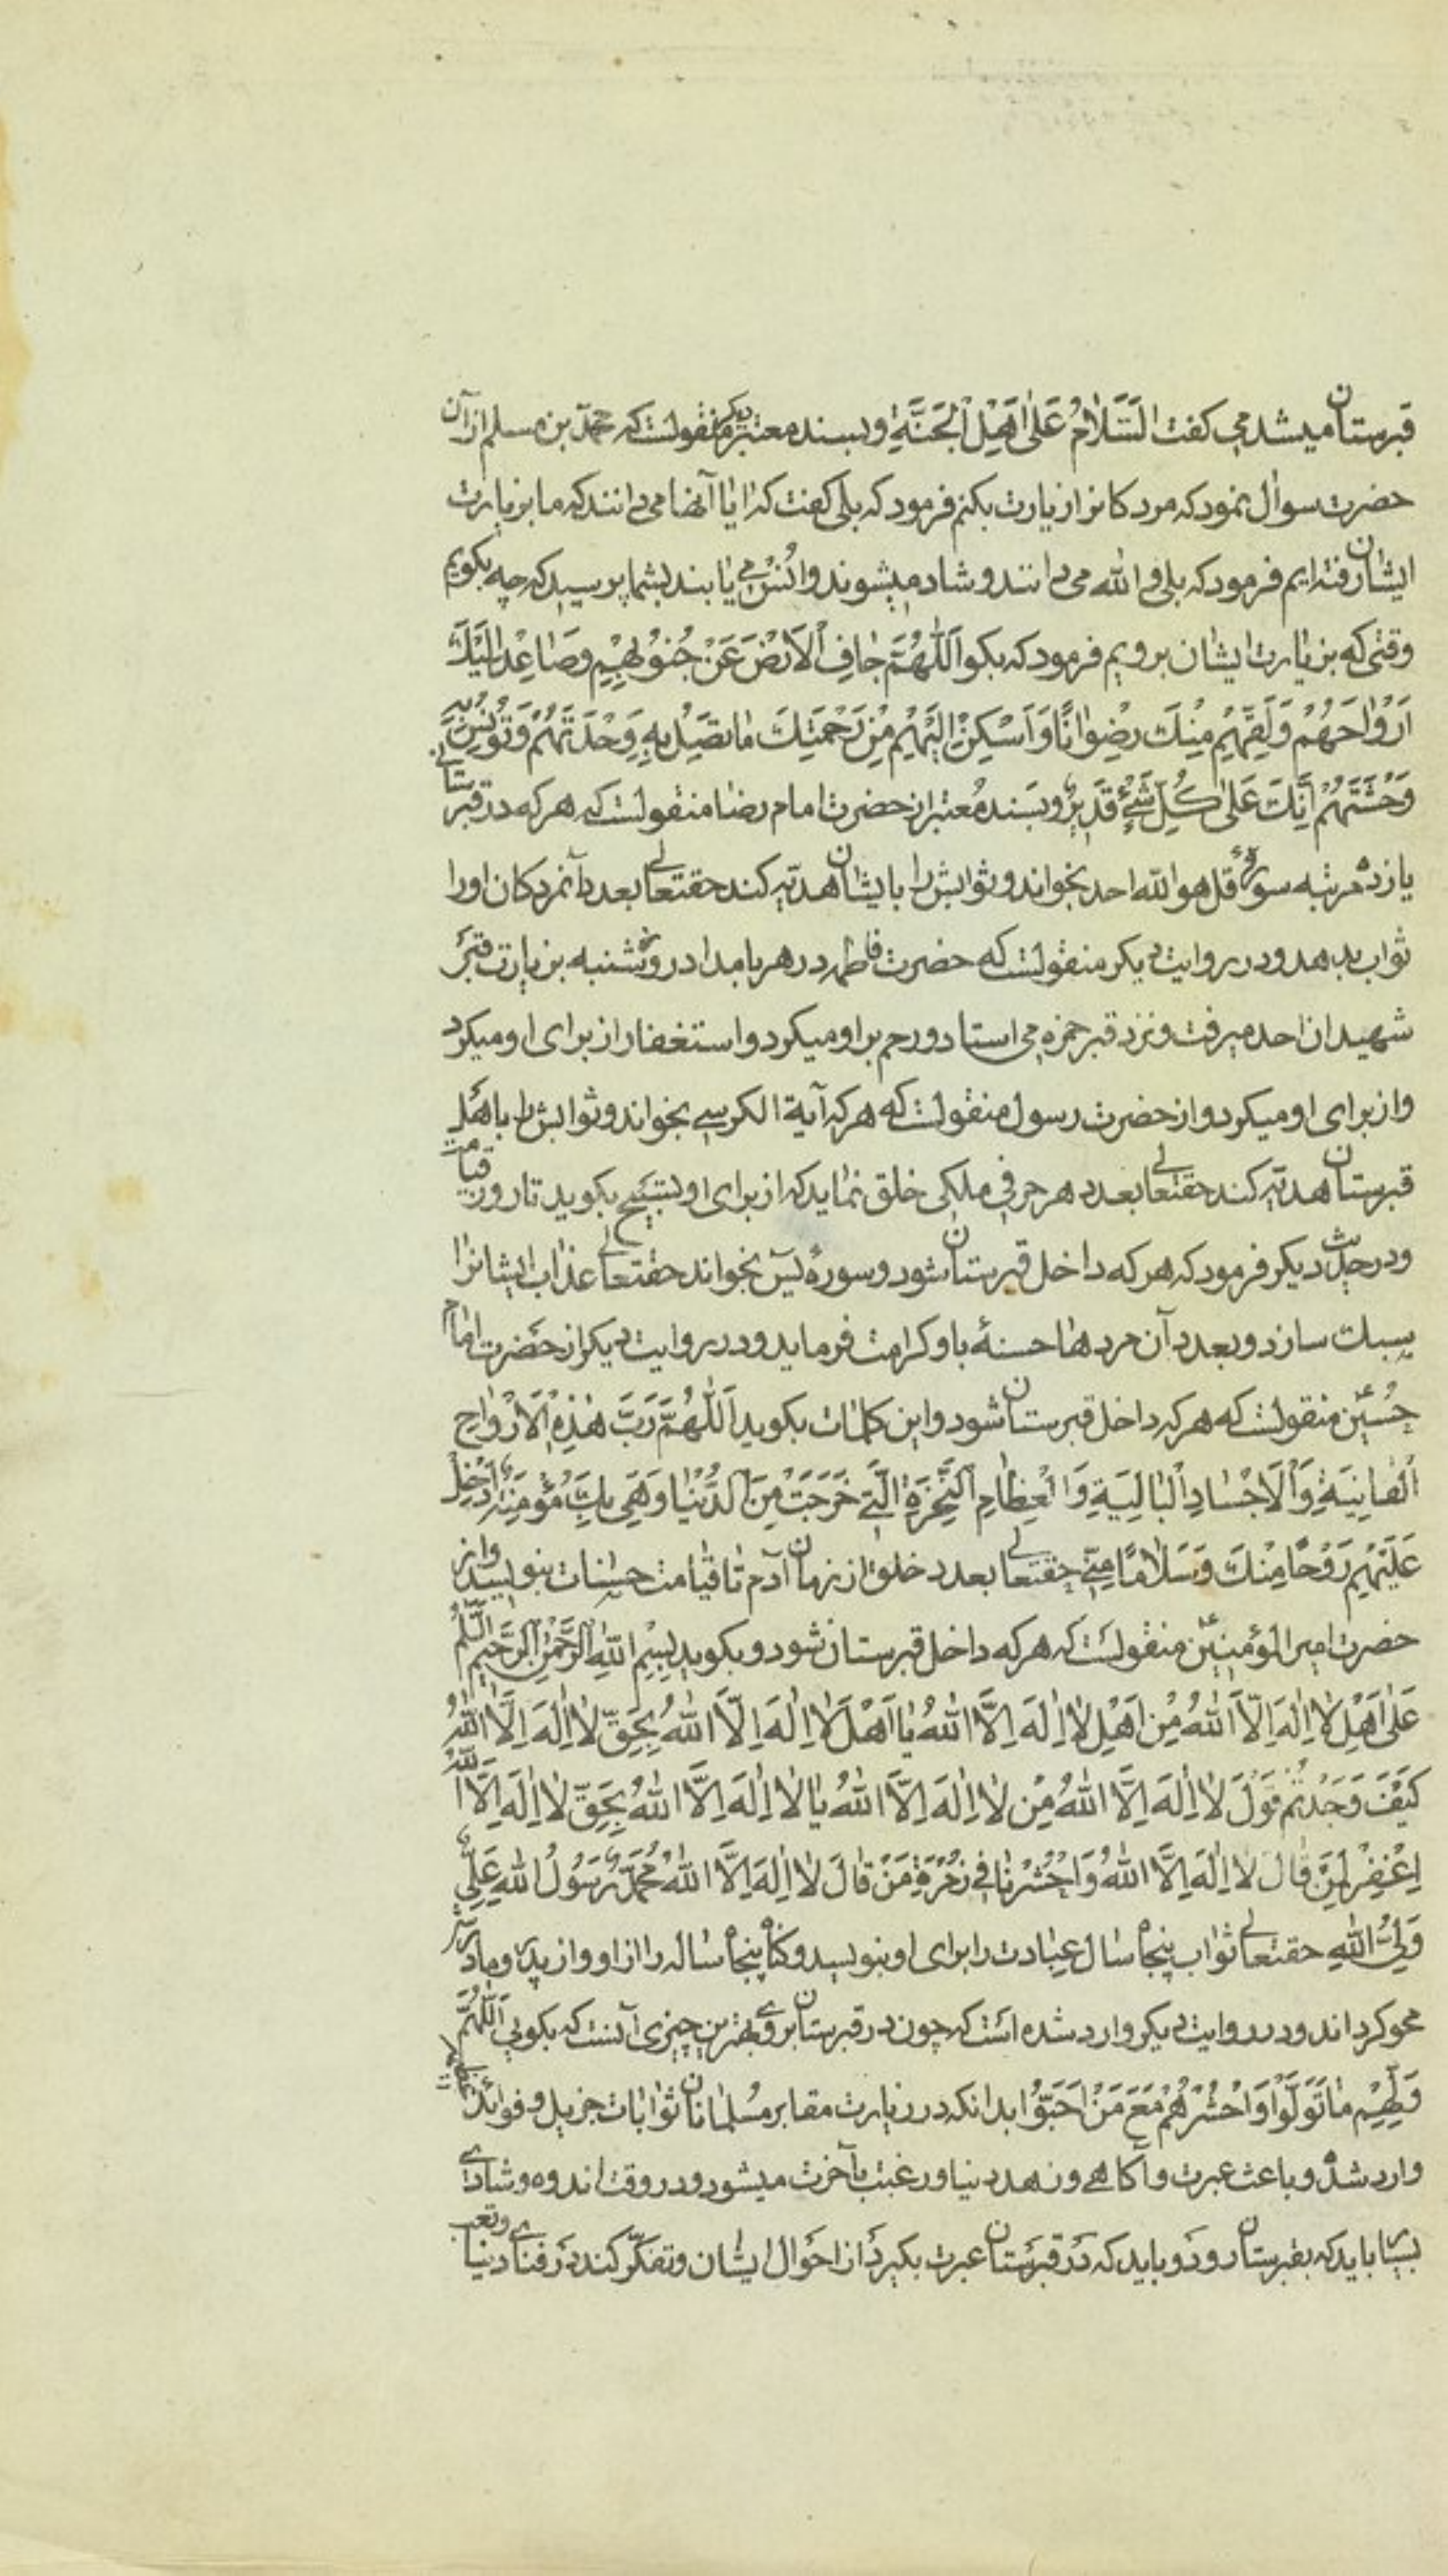 قبرستان میشد می کفت اَلسَّلامُ عَلیٰ اَهْلِ الْجَنَّةِ و بسند معتبر دیکر منقولست که محمّد بن مسلم از آن
حضرت سوال نمود که مردکانرا زیارت بکنم فرمود که بلی کفت که ایا آنها می دانند که ما بزیارت
ایشان رفته ایم فرمود که بلی و الله می دانند و شاد میشوند و انس می یابند بشما پرسید که چه بکویم
وقتی که بزیارت ایشان برویم فرمود که بکو اَللّٰهُمَّ جافِ الْاَرْضَ عَنْ جُنُوبِهِمْ وَصاعِدْ اِلَیْكَ
اَرْواحَهُمْ وَلَقِّهِمْ مِنْكَ رِضْواناً وَاَسْكِنْ اِلَیْهِمْ مِنْ رَحْمَتِكَ ماتَصِلُ بِهِ وَحْدَتَهُمْ وَتُونِسُ بِهِ
وَحْشَتَهُمْ اِنَّكَ عَلیٰ كُلِّ شَیْءٍ قَدِیرٌ و بسند معتبر از حضرت امام رضا منقولست که هر که در قبرستانی
یازده مرتبه سورهٔ قل هو الله احد بخواند و ثوابش را بایشان هدیّه کند حقتعالی بعدد آنمردکان او را
ثواب بدهد و در روایت دیکر منقولست که حضرت فاطمه در هر بامداد روز شنبه بزیارت قبر
شهیدان احد میرفت و نزد قبر حمزه می استاد و رحم بر او میکرد و استغفار از برای او میکرد
و از برای او میکرد و از حضرت رسول منقولست که هر که آیة الکرسی بخواند و ثوابش را باهل
قبرستان هدیّه کند حقتعالی بعدد هر حرفی ملکی خلق نماید که از برای او تسبیح بکوید تا روز قیامت
و در حدیث دیکر فرمود که هر که داخل قبرستان شود و سورهٔ یٓس بخواند حقتعالی عذاب ایشانرا
سبك سازد و بعدد آن مردها حسنهٔ باو کرامت فرماید و در روایت دیکر از حضرت امام
حُسین ع منقولست که هر که داخل قبرستان شود و این کلمات بکوید اَللّٰهُمَّ رَبَّ هٰذِهِ الْاَرْواحِ
الْفانِیَةِ وَالْاَجْسادِ الْبالِیَةِ وَالْعِظامِ النَّخِرَةِ الَّتی خَرَجَتْ مِنَ الدُّنْیا وَهِیَ بِكَ مُؤْمِنَةٌ اَدْخِلْ
عَلَیْهِمْ رَوْحاً مِنْكَ وَسَلاماً مِنّی حقتعالی بعدد خلق از زمان آدم تا قیامت حسنات بنویسد و از
حضرت امیر المؤمنین ع منقولست که هر که داخل قبرستان شود و بکوید بِسْمِ اللهِ الرَّحْمٰنِ الرَّحیمِ اَلسَّلٰمُ
عَلیٰ اَهْلِ لا اِلٰهَ اِلَّا اللهُ مِنْ اَهْلِ لا اِلٰهَ اِلَّا اللهُ یا اَهْلَ لا اِلٰهَ اِلَّا اللهُ بِحَقِّ لا اِلٰهَ اِلَّا اللهُ
كَیْفَ وَجَدْتُمْ قَوْلَ لا اِلٰهَ اِلَّا اللهُ مِنْ لا اِلٰهَ اِلَّا اللهُ یا لا اِلٰهَ اِلَّا اللهُ بِحَقِّ لا اِلٰهَ اِلَّا اللهُ
اِغْفِرْ لِمَنْ قالَ لا اِلٰهَ اِلَّا اللهُ وَاحْشُرْنا فی زُمْرَةِ مَنْ قالَ لا اِلٰهَ اِلَّا اللهُ مُحَمَّدٌ رَسُولُ اللهِ عَلِیٌّ
وَلِیُّ اللهِ حقتعالی ثواب پنجاه سال عبادت را برای او بنویسد و کناه پنجاه ساله را از او و از پدر و مادرش
محو کرداند و در روایت دیکر وارد شده است که چون در قبرستان بروی بهترین چیزی آنست که بکویی اَللّٰهُمَّ
وَلِّهِمْ ماتَوَلَّوْا وَاحْشُرْهُمْ مَعَ مَنْ اَحَبُّوا بدانکه در زیارت مقابر مسلمانان ثوابات جزیل و فوائد
وارد شده و باعث عبرت و آکاهی و زهد دنیا و رغبت بآخرت میشود و در وقت اندوه و شادی
بسیار باید که بقبرستان رود و باید که در قبرستان عبرت بکیرد از احوال ایشان و تفکّر کند در فنای دنیا و تعب